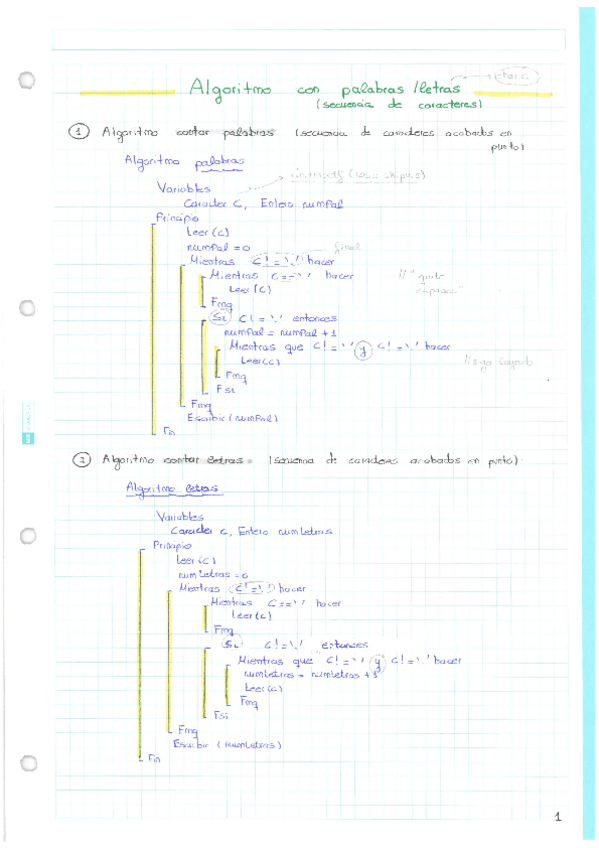 Algoritmo con palabras/letras
char c
(secuencia de caracteres)
① Algoritmo contar palabras (secuencia de caracteres acabados en
punto)
Algoritmo palabras
Variables
Caracter C, Entero numPal
Principio
Leer(c)
numPal = 0
final
Mientras C!='.' hacer
Mientras C==' ' hacer
// "quito
espacios"
Leer(c)
Fmq
Si C!='.' entonces
numPal = numPal + 1
Mientras que C!=' ' y C!='.' hacer
Leer(c)
// sigo leyendo
Fmq
Fsi
Fmq
Escribir(numPal)
Fin
② Algoritmo contar letras (secuencia de caracteres acabados en punto)
Algoritmo letras
Variables
Caracter c, Entero numLetras
Principio
Leer(c)
numLetras=0
Mientras C!='.' hacer
Mientras C==' ' hacer
Leer(c)
Fmq
Si C!='.' entonces
Mientras que C!=' ' y C!='.' hacer
numLetras = numLetras + 1
Leer(c)
Fmq
Fsi
Fmq
Escribir (numLetras)
Fin
1